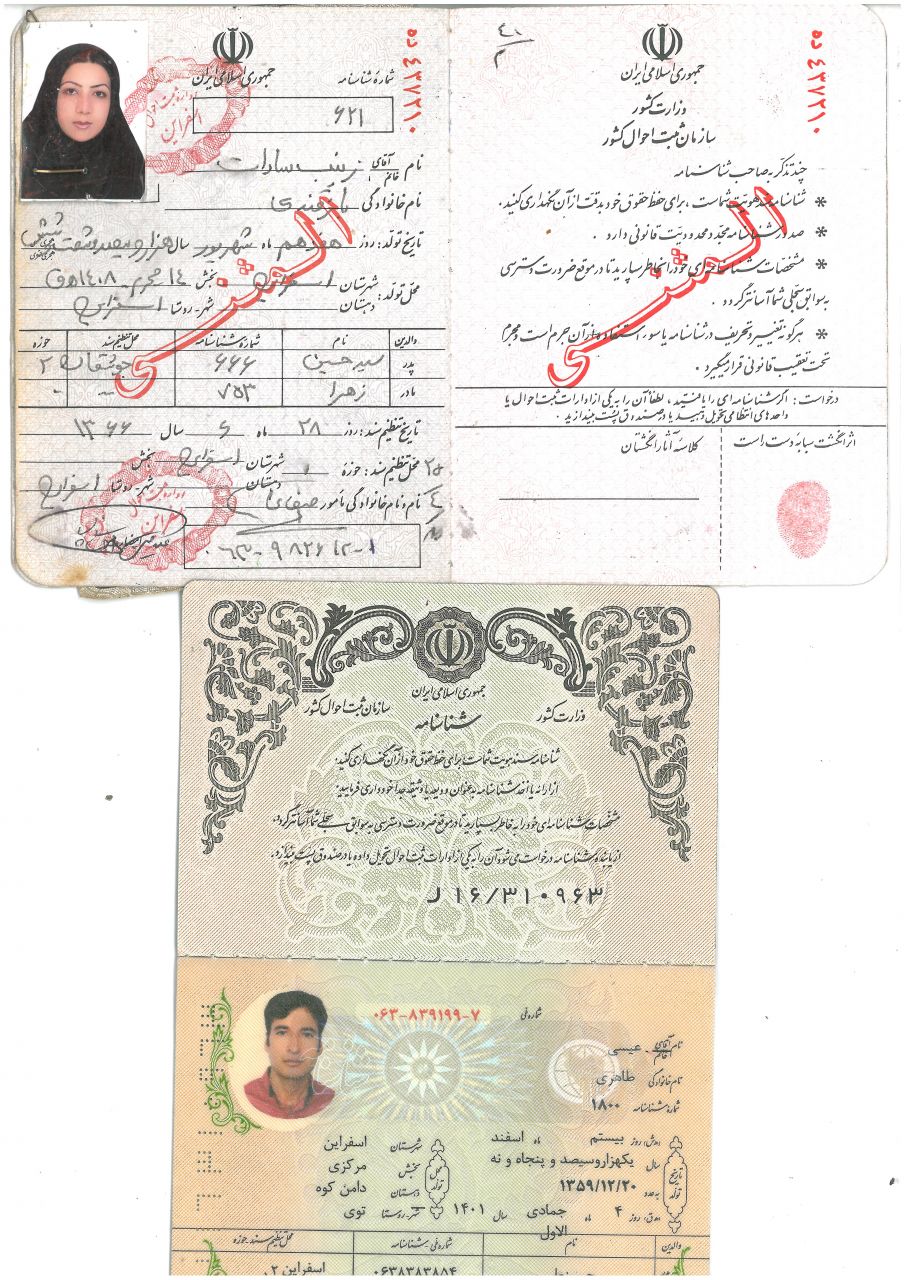 ۴۰/م
جمهوری اسلامی ایران
وزارت کشور
سازمان ثبت احوال کشور
۴۲۷۲۱۰ ده
چند تذکر به صاحب شناسنامه
* شناسنامه سند هویت شماست ، برای حفظ حقوق خود بدقت از آن نگهداری کنید .
* صدور شناسنامه مجدد محدودیت قانونی دارد .
* مشخصات شناسنامه ای خود را بخاطر بسپارید تا در موقع ضرورت دسترسی
به سوابق سجلی شما آسانتر گردد .
* هرگونه تغییر و تحریف در شناسنامه یا سوء استفاده از آن جرم است و مجرم
تحت تعقیب قانونی قرار میگیرد .
المثنی
درخواست : اگر شناسنامه ای را یافتید ، لطفاً آن را به یکی از ادارات ثبت احوال یا
واحدهای انتظامی تحویل دهید یا در صندوق پست بیندازید .
اثر انگشت سبابه دست راست
کلاسه آثار انگشتان
۴۲۷۲۱۰ ده
جمهوری اسلامی ایران
شماره شناسنامه
۶۲۱
نام آقای خانم زینب سادات
نام خانوادگی
تاریخ تولد : روز هفدهم ماه شهریور سال هزار و سیصد و شصت و شش
۱۴ محرم ۱۴۰۸ ه‍ق
محل تولد : شهرستان اسفراین بخش
دهستان شهر - روستا اسفراین
المثنی
والدین نام شماره شناسنامه محل تنظیم سند حوزه
پدر سید حسین ۶۶۶ جوشقان ۲
مادر زهرا ۷۵۳ - -
تاریخ تنظیم سند : روز ۲۸ ماه ۶ سال ۱۳۶۶
محل تنظیم سند : حوزه ۱ شهرستان اسفراین بخش
دهستان شهر - روستا اسفراین
نام و نام خانوادگی مأمور
۰۶۳-۹۸۲۶۱۲-۱
جمهوری اسلامی ایران
وزارت کشور
سازمان ثبت احوال کشور
شناسنامه
شناسنامه سند هویت شماست برای حفظ حقوق خود از آن نگهداری کنید:
از ارائه یا اخذ شناسنامه به عنوان ودیعه یا وثیقه جداً خودداری فرمایید:
مشخصات شناسنامه ای خود را به خاطر بسپارید تا در موقع ضرورت دسترسی به سوابق سجلی شما آسانتر گردد.
از یابنده شناسنامه درخواست می شود آن را به یکی از ادارات ثبت احوال تحویل داده یا در صندوق پست بیندازد.
ل ۱۶/۳۱۰۹۶۳
شماره ملی ۰۶۳-۸۳۹۱۹۹-۷
نام آقای خانم عیسی
نام خانوادگی طاهری
شماره شناسنامه ۱۸۰۰
تاریخ تولد
ه‍.ش: روز بیستم ماه اسفند
سال یکهزاروسیصد و پنجاه و نه
به عدد ۱۳۵۹/۱۲/۲۰
ه‍.ق: روز ۴ ماه جمادی الاول سال ۱۴۰۱
محل تولد
شهرستان اسفراین
بخش مرکزی
دهستان دامن کوه
شهر-روستا توی
والدین نام شماره ملی-شناسنامه محل تنظیم سند-حوزه
۰۶۳۸۳۸۳۸۵۴ اسفراین ۲